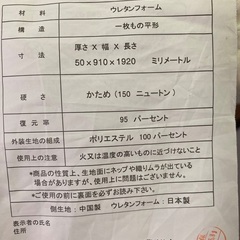 材料 ウレタンフォーム
構造 一枚もの平形
厚さ X 幅 X 長さ
寸法
50×910×1920 ミリメートル
硬さ かため(150 ニュートン)
復元率 95 パーセント
外装生地の組成 ポリエステル 100 パーセント
使用上の注意 火又は温度の高いものに近づけないこと
*商品の性質上、生地面にネップや織りムラが出ている
場合がありますが、使用上問題ございません。
*ご使用の前に裏面を必ずお読み下さい。
側生地:中国製 ウレタンフォーム:日本製
表示者の氏名
住所